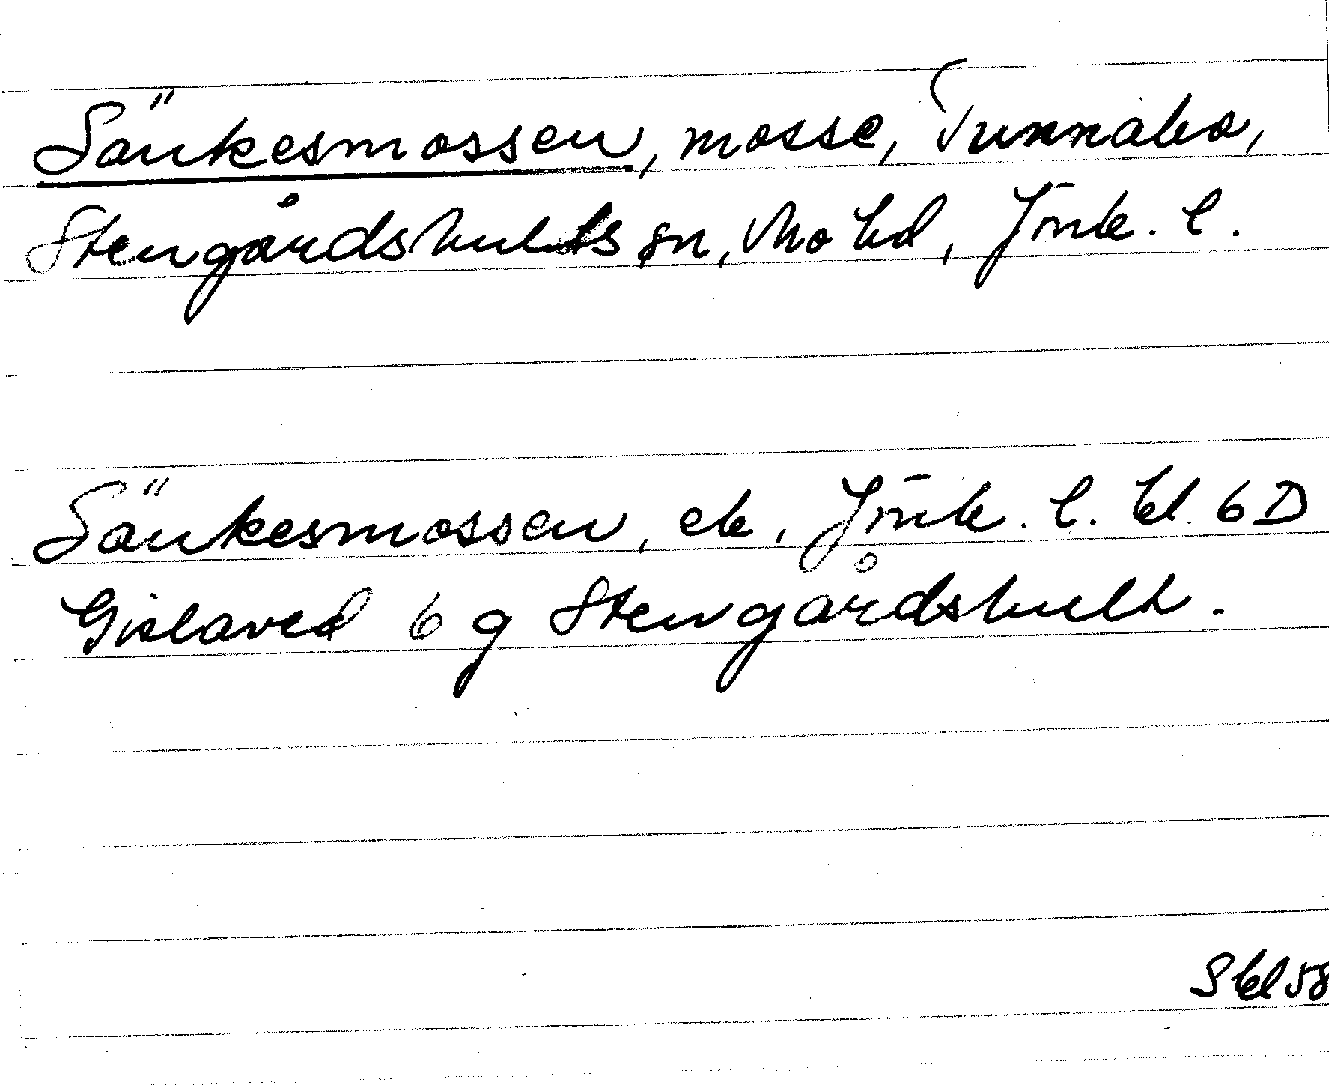 Sänkesmossen, mosse, Tunnabo,
Stengårdshults sn, Mo hd, Jönk. l.
Sänkesmossen, ek, Jönk. l. bl. 6D
Gislaved 6 g Stengårdshult.